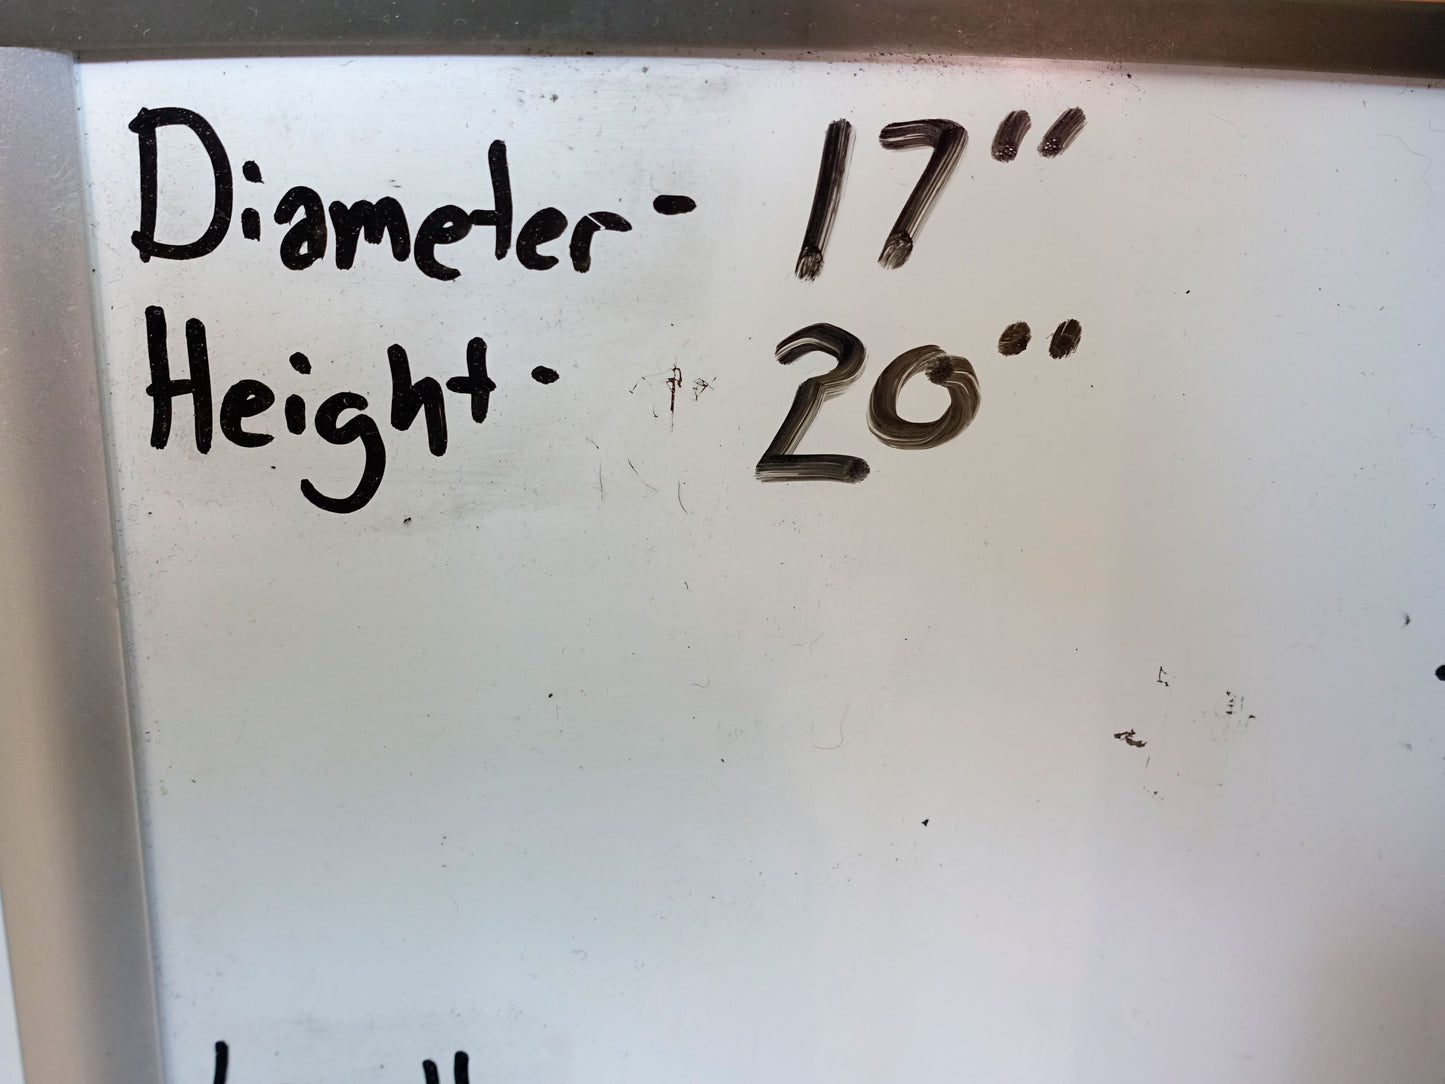 Diameter- 17"
Height- 20"